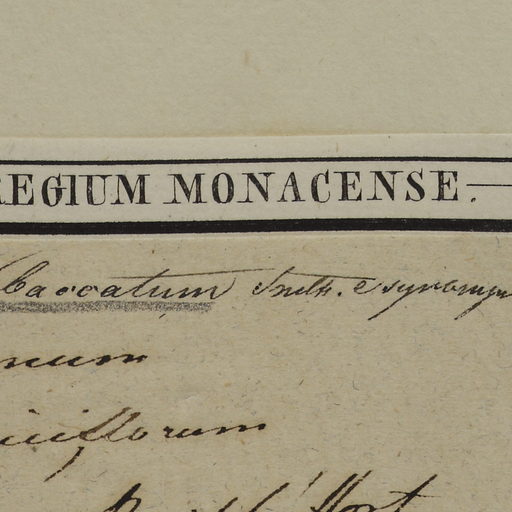 REGIUM MONACENSE.
baccatum Smith. e synonym
num
iciflorum
Hort